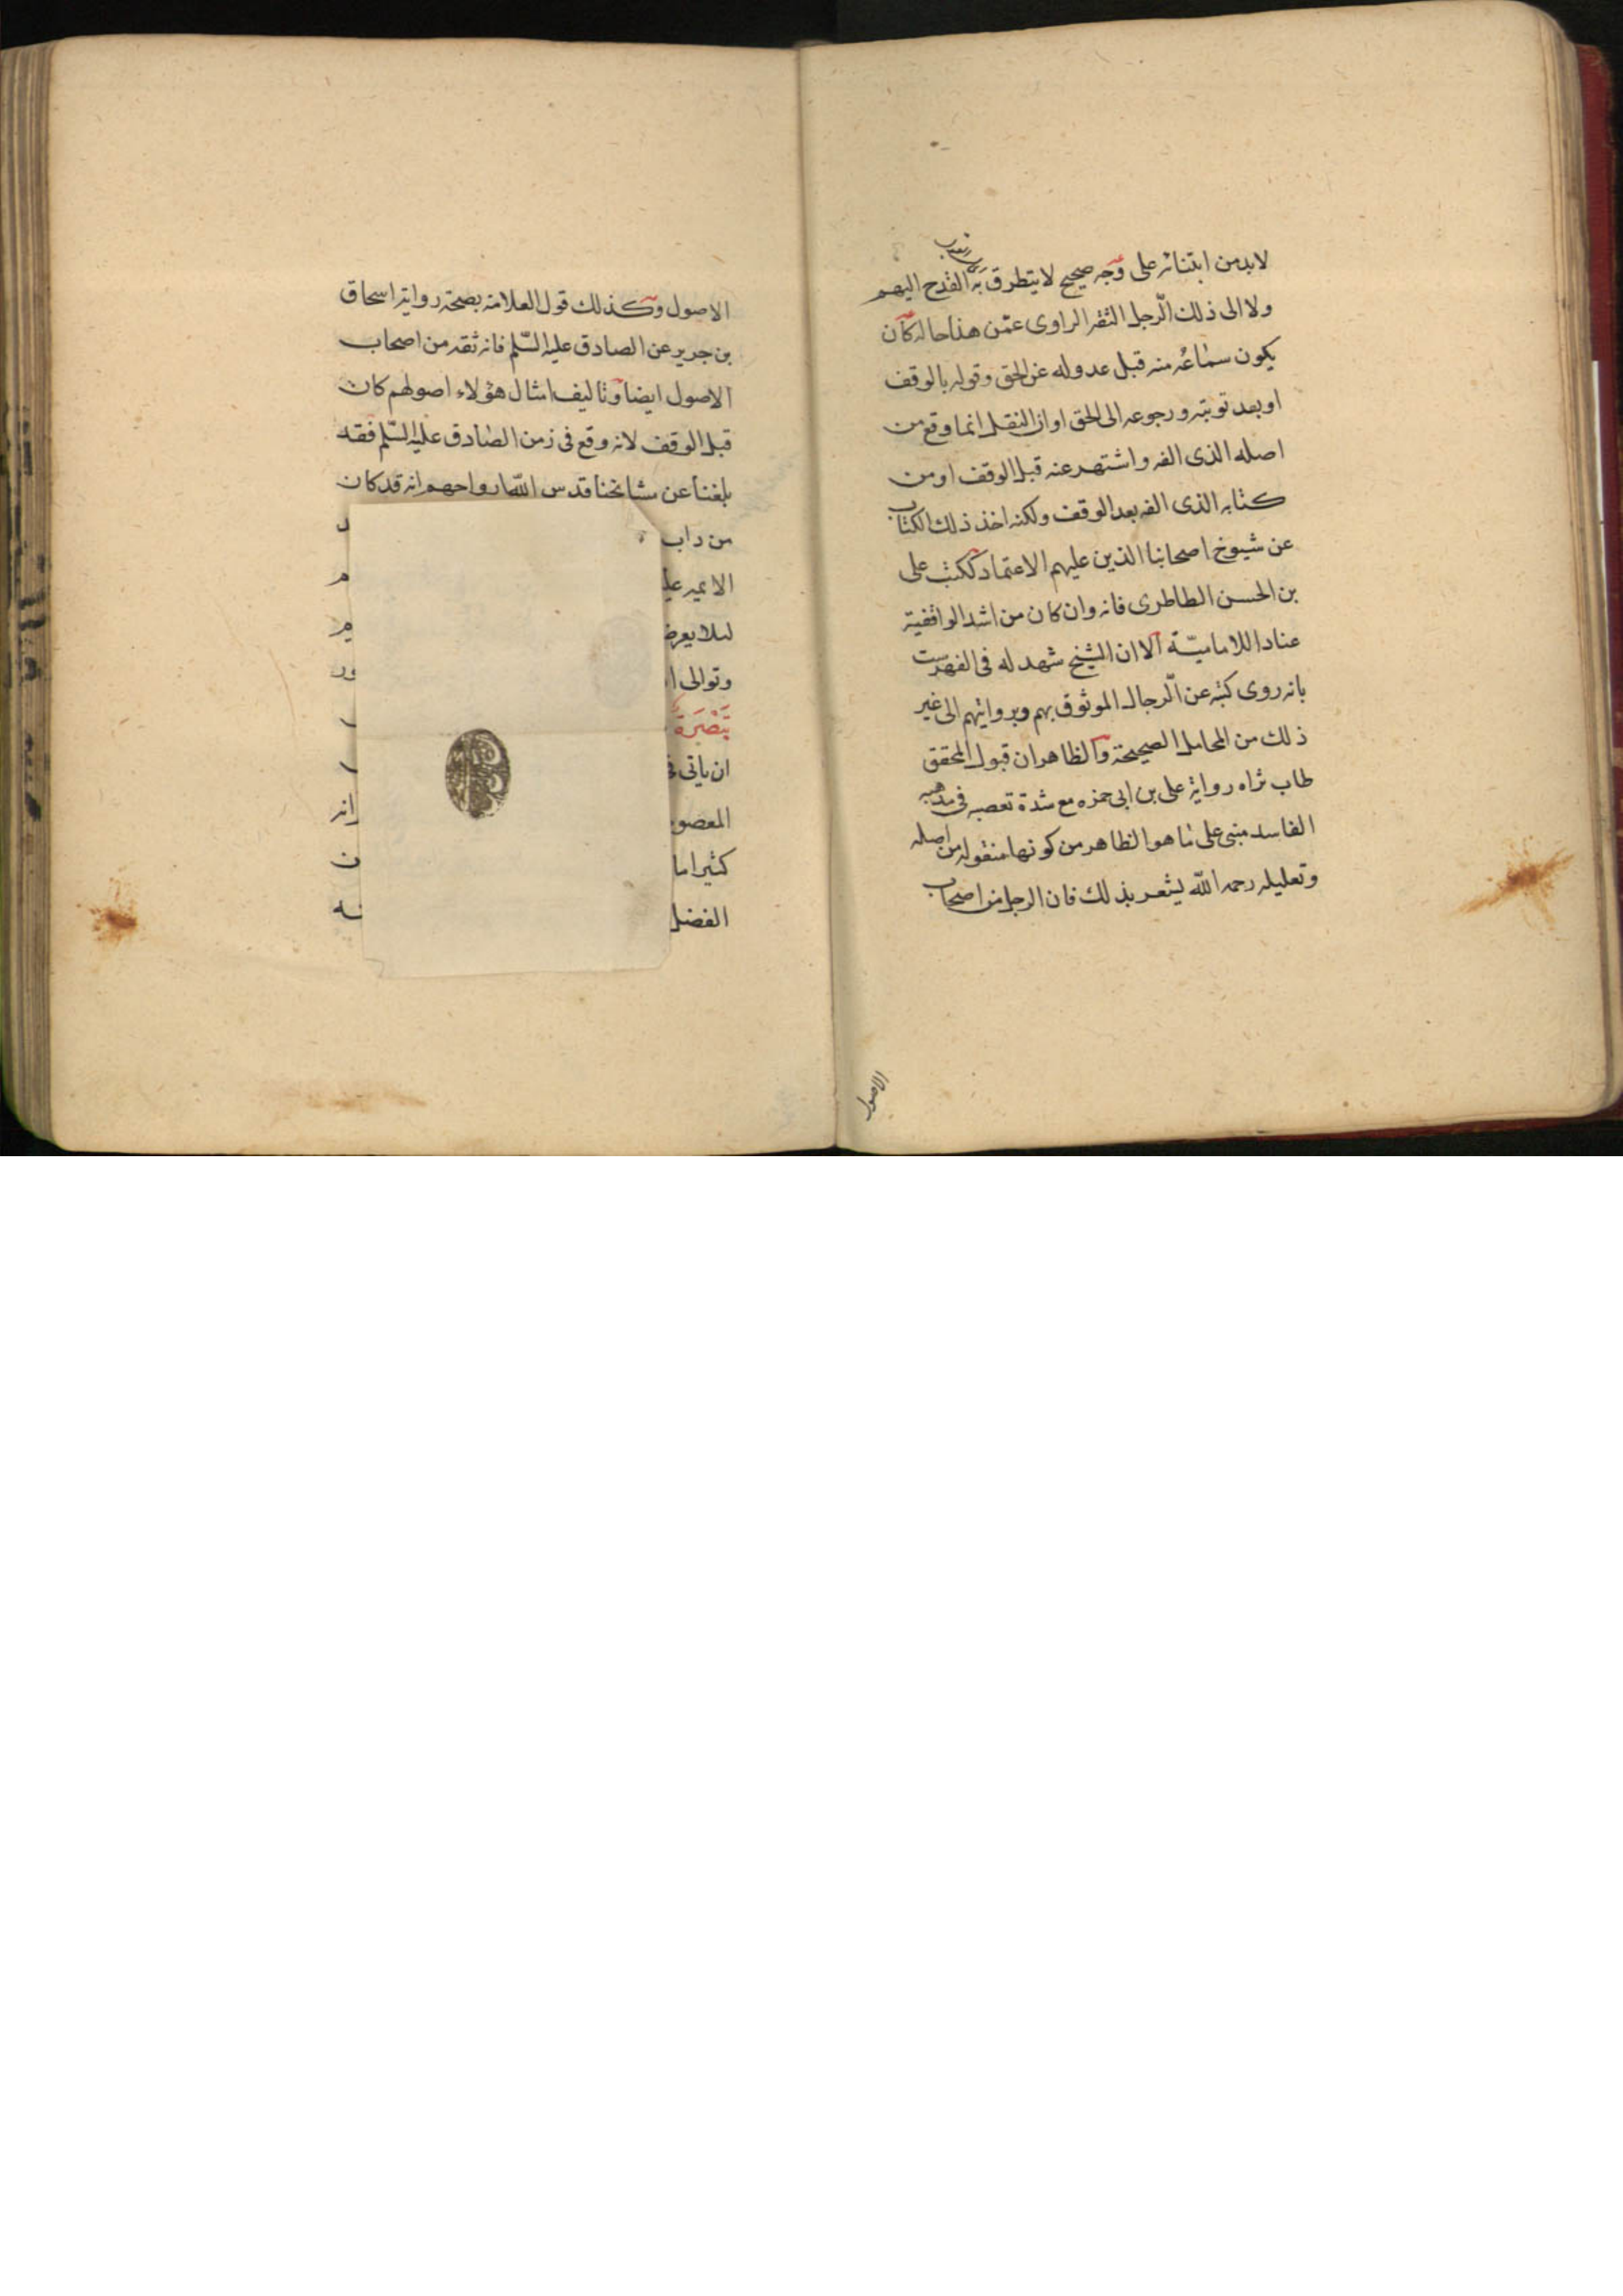 لابد من ابتنائه على وجه صحيح لا يتطرق به القدح اليهم
ولا الى ذلك الرجل الثقه الراوى عمّن هذا حاله كان
يكون سماعه منه قبل عدوله عن الحق وقوله بالوقف
او بعد توبته ورجوعه الى الحق او ان النقل انما وقع من
اصله الذى الفه واشتهر عنه قبل الوقف او من
كتابه الذى الفه بعد الوقف ولكنه اخذ ذلك الكتاب
عن شيوخ اصحابنا الذين عليهم الاعتماد ككتب على
بن الحسن الطاطرى فانه وان كان من اشد الواقفية
عنادا للاماميّة الا ان الشيخ شهد له فى الفهرست
بانه روى كتبه عن الرجال الموثوق بهم وبرواياتهم الى غير
ذلك من المحامل الصحيحة والظاهر ان قبول المحقق
طاب ثراه رواية على بن ابى حمزه مع شدة تعصبه فى مذهبه
الفاسد مبنى على ما هو الظاهر من كونها منقوله من اصله
وتعليله رحمه اللّه يشعر بذلك فان الرجل من اصحاب
الاصول
الاصول وكذلك قول العلامة بصحة رواية اسحاق
بن جرير عن الصادق عليه السّلم فانه ثقه من اصحاب
الاصول ايضا وتاليف امثال هؤلاء اصولهم كان
قبل الوقف لانه وقع فى زمن الصادق عليه السّلم فقد
بلغنا عن مشايخنا قدس اللّه ارواحهم انه قد كان
من داب
الائمه علي
لئلا يعرض
وتوالى ا
تبصرة
ان ياتى ف
المعصوم
كثيرا ما
الفضل